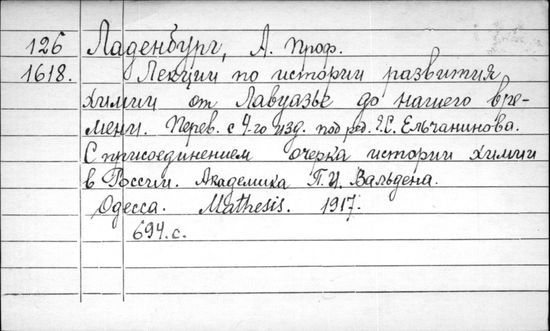 126 Ладенбург, А. Проф.
1618. Лекции по истории развития
химии от Лавуазье до нашего вре-
мени. Перев. с 4-го изд. под ред. Е.С. Ельчанинова.
С присоединением очерка истории химии
в России. Академика П.И. Вальдена.
Одесса. Mathesis. 1917.
694 с.